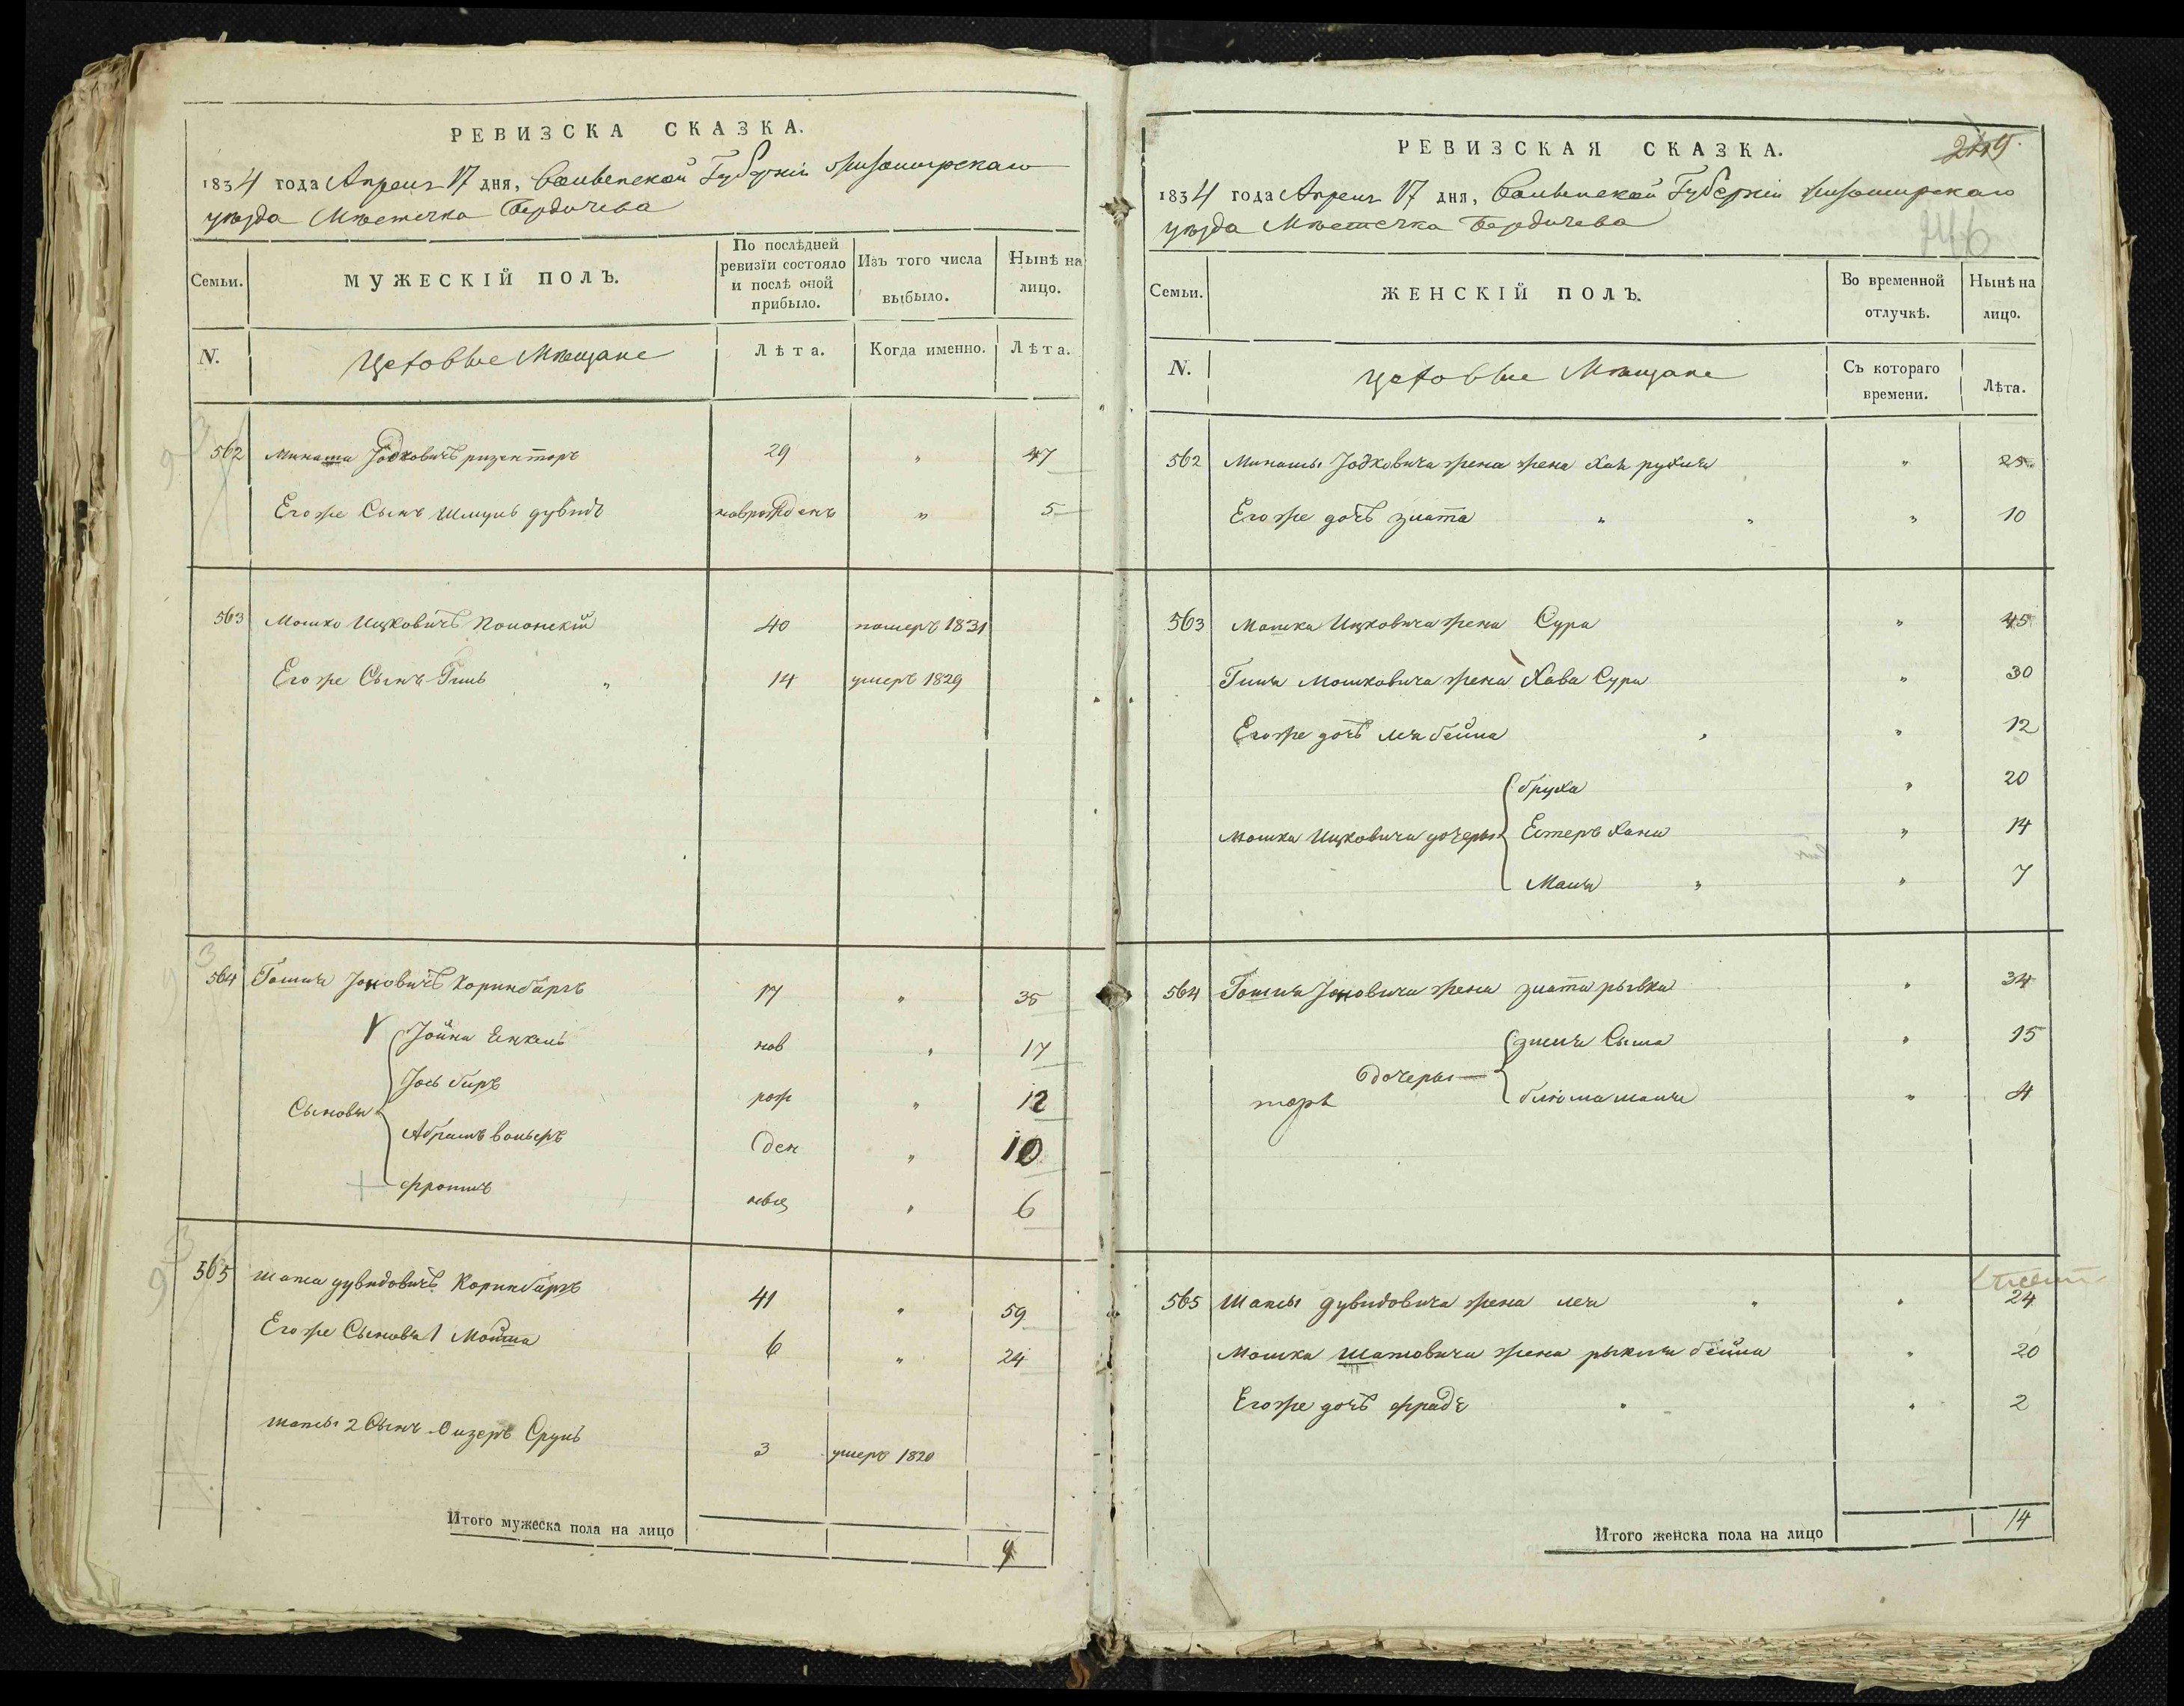 РЕВИЗСКА СКАЗКА.
1834 года Апреля 17 дня, Волынской Губерніи Житомирскаго
уѣзда Мѣстечка Бердичева
Семьи.
МУЖЕСКІЙ ПОЛЪ.
По послѣдней ревизіи состояло и послѣ оной прибыло.
Изъ того числа выбыло.
Нынѣ на лицо.
N.
Цеховые Мѣщане
Лѣта.
Когда именно.
Лѣта.
562 Минаша Іодковичъ 29 " 47
Егоже Сынъ Шмуль дувидъ новрожденъ " 5
563 Мошко Ицковичъ Полонскій 40 померъ 1831
Егоже Сынъ Гиль " 14 умеръ 1829
564 Іоновичъ Коринбаргъ 17 " 35
Іойна Енкель нов " 17
Іось биръ рож " 12
Сыновья
Абрамъ вольеръ ден " 10
фроимъ " 6
565 Шапса дувидовичъ Коринбаргъ 41 " 59
Егоже Сыновья 1 Мойша 6 " 24
Шапсы 2 Сынъ Срулъ 3 умеръ 1820
Итого мужеска пола на лицо 9
РЕВИЗСКАЯ СКАЗКА.
1834 года Апреля 17 дня, Волынской Губерніи Житомирскаго
уѣзда Мѣстечка Бердичева
Семьи.
ЖЕНСКІЙ ПОЛЪ.
Во временной отлучкѣ.
Нынѣ на лицо.
N.
Цеховые Мѣщане
Съ котораго времени.
Лѣта.
562 Минашы Іодковича жена жена Хая рухля " 25
Егоже дочъ злата " " " 10
563 Мошка Ицковича жена Сура " 45
Гиля Мошковича жена Хава Сура " 30
Егоже дочъ лея бейла " " 12
бруха " 20
Мошка Ицковича дочеры Естеръ Хана " 14
Маля " " 7
564 Іоновича жена злата рывка " 34
Сыма " 15
дочеры
блюма " 4
565 Шапсы дувидовича жена лея " " 24
Мошка Шапсовича жена бейла " 20
Егоже дочъ фрадя " " 2
Итого женска пола на лицо 14